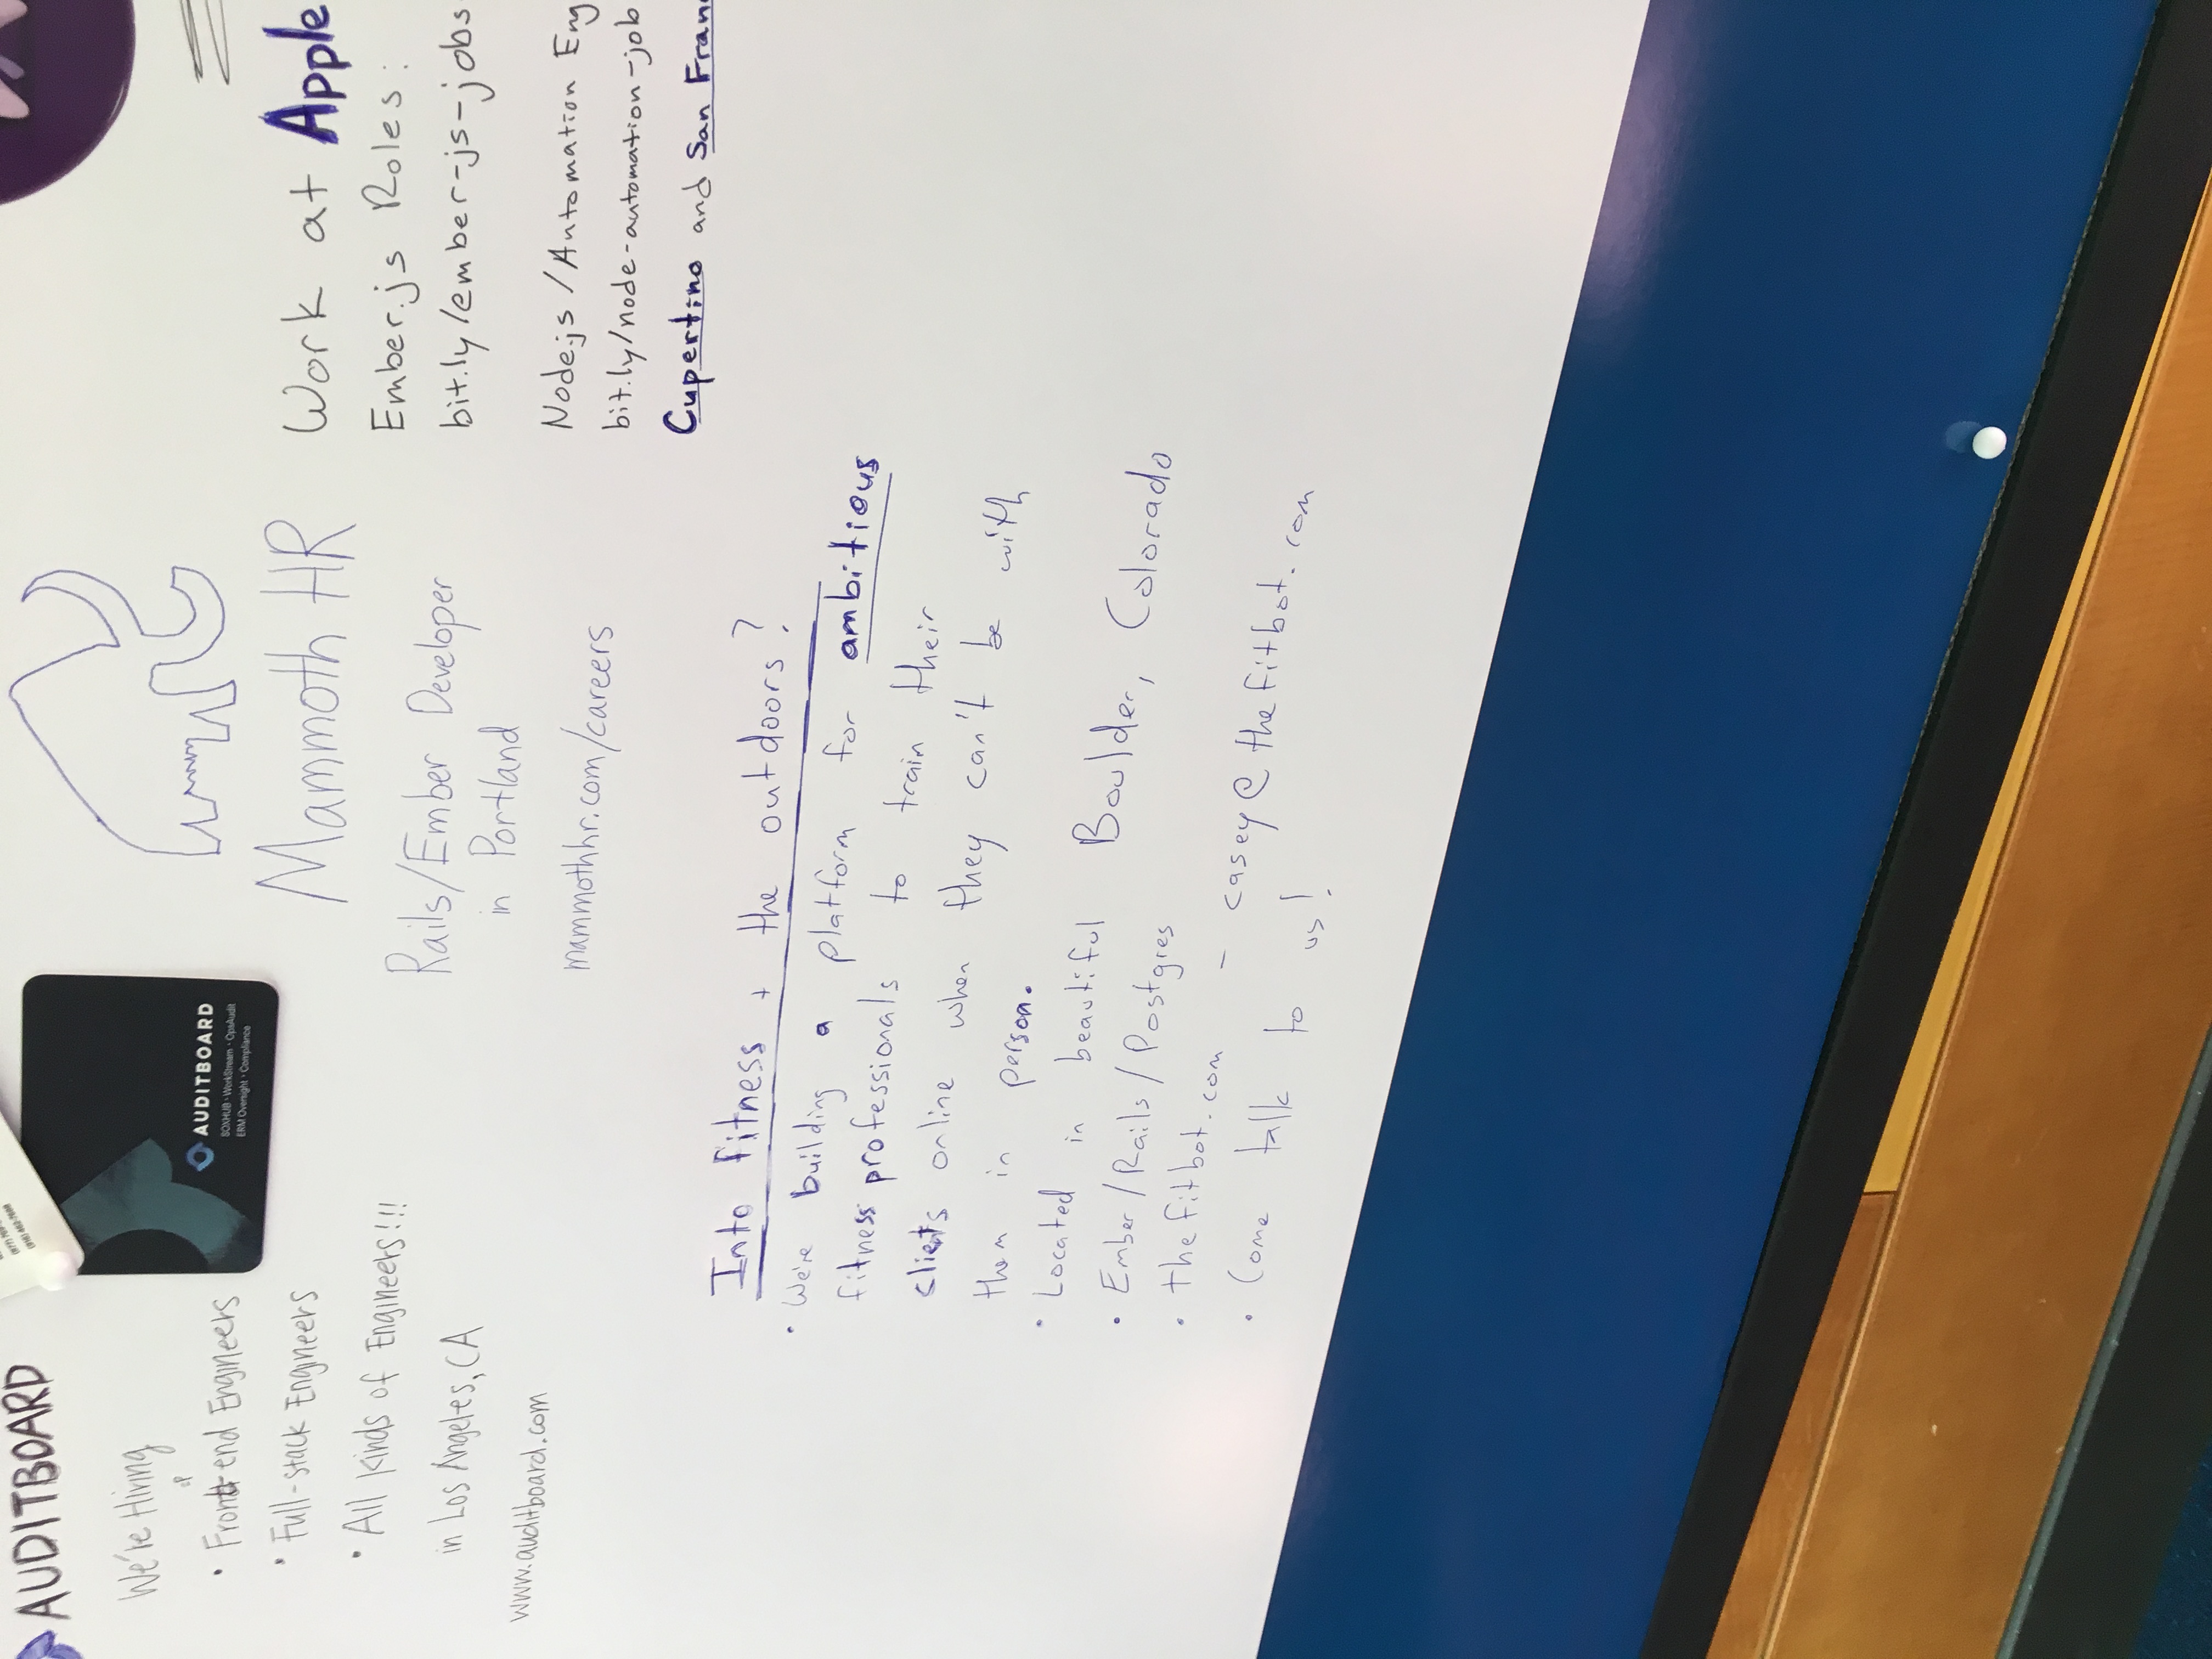 AUDITBOARD
We're Hiring
• Front end Engineers
• Full-stack Engineers
• All Kinds of Engineers!!!
in Los Angeles, CA
www.auditboard.com
AUDITBOARD
SOXHUB • WorkStream • OpsAudit
ERM Oversight • Compliance
Mammoth HR
Rails/Ember Developer
in Portland
mammothhr.com/careers
Work at Apple
Ember.js Roles:
bit.ly/ember-js-jobs
Node.js /Automation Eng
bit.ly/node-automation-job
Cupertino and San Fran
Into fitness + the outdoors?
• We're building a platform for ambitious
fitness professionals to train their
clients online when they can't be with
them in person.
• Located in beautiful Boulder, Colorado
• Ember/Rails/Postgres
• thefitbot.com - casey@thefitbot.com
• Come talk to us!